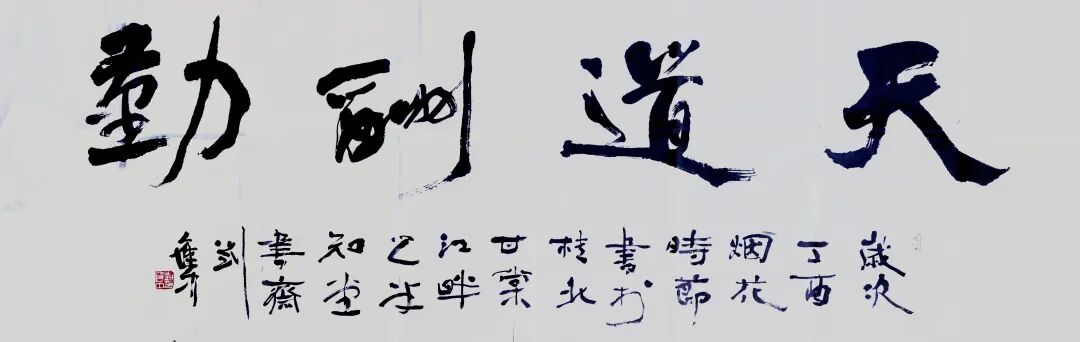 天道酬勤
歲次
丁酉
烟花
時節
書於
桂北
甘棠
江畔
之半
知堂
書齋
刘